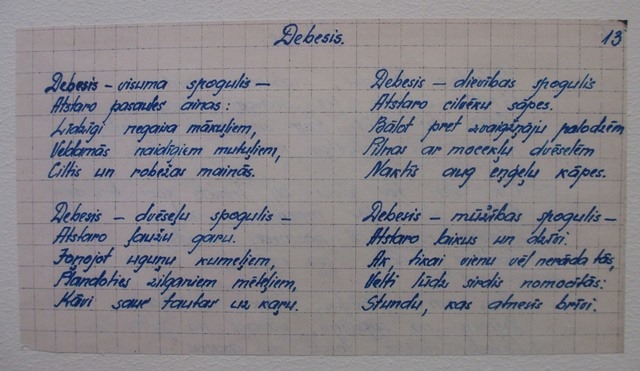 Debesis.
13
Debesis – visuma spogulis –
Atstaro pasaules ainas:
Līdzīgi negaisa mākuļiem,
Veldamās naidīgiem mutuļiem,
Ciltis un robežas mainās.
Debesis – dvēseļu spogulis –
Atstaro ļaužu garu.
Joņojot uguņu kumeļiem,
Plandoties zilganiem mēteļiem,
Kāvi sauc tautas uz karu.
Debesis – dievības spogulis
Atstaro cilvēku sāpes.
Bālot pret zvaigžņāju palodzēm
Pilnas ar mocekļu dvēselēm
Naktīs aug eņģeļu kāpes.
Debesis – mūžības spogulis –
Atstaro laikus un dzīvi.
Ak, tikai vienu vēl nerāda tās,
Velti lūdz sirdis nomocītās:
Stundu, kas atnesīs brīvi.